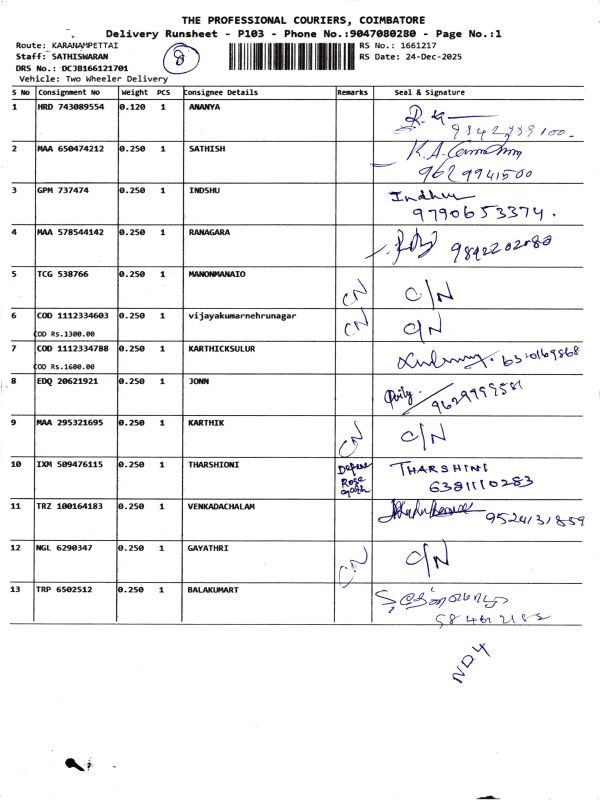 THE PROFESSIONAL COURIERS, COIMBATORE
Delivery Runsheet - P103 - Phone No.:9047080280 - Page No.:1
Route: KARANAMPETTAI
8
RS No.: 1661217
Staff: SATHISWARAN
RS Date: 24-Dec-2025
DRS No.: DCJB166121701
Vehicle: Two Wheeler Delivery
S No Consignment No Weight PCS Consignee Details Remarks Seal & Signature
1 HRD 743089554 0.120 1 ANANYA
2 MAA 650474212 0.250 1 SATHISH
9629941500
3 GPM 737474 0.250 1 INDSHU Indhu
9790653374.
4 MAA 578544142 0.250 1 RANAGARA
5 TCG 538766 0.250 1 MANONMANAIO CN C/N
6 COD 1112334603 0.250 1 vijayakumarnehrunagar CN C/N
COD Rs.1300.00
7 COD 1112334788 0.250 1 KARTHICKSULUR
COD Rs.1600.00
8 EDQ 20621921 0.250 1 JONN
9 MAA 295321695 0.250 1 KARTHIK CN C/N
10 IXM 509476115 0.250 1 THARSHIONI THARSHINI
6381110283
11 TRZ 100164183 0.250 1 VENKADACHALAM 9524131859
12 NGL 6290347 0.250 1 GAYATHRI CN C/N
13 TRP 6502512 0.250 1 BALAKUMART
ND4